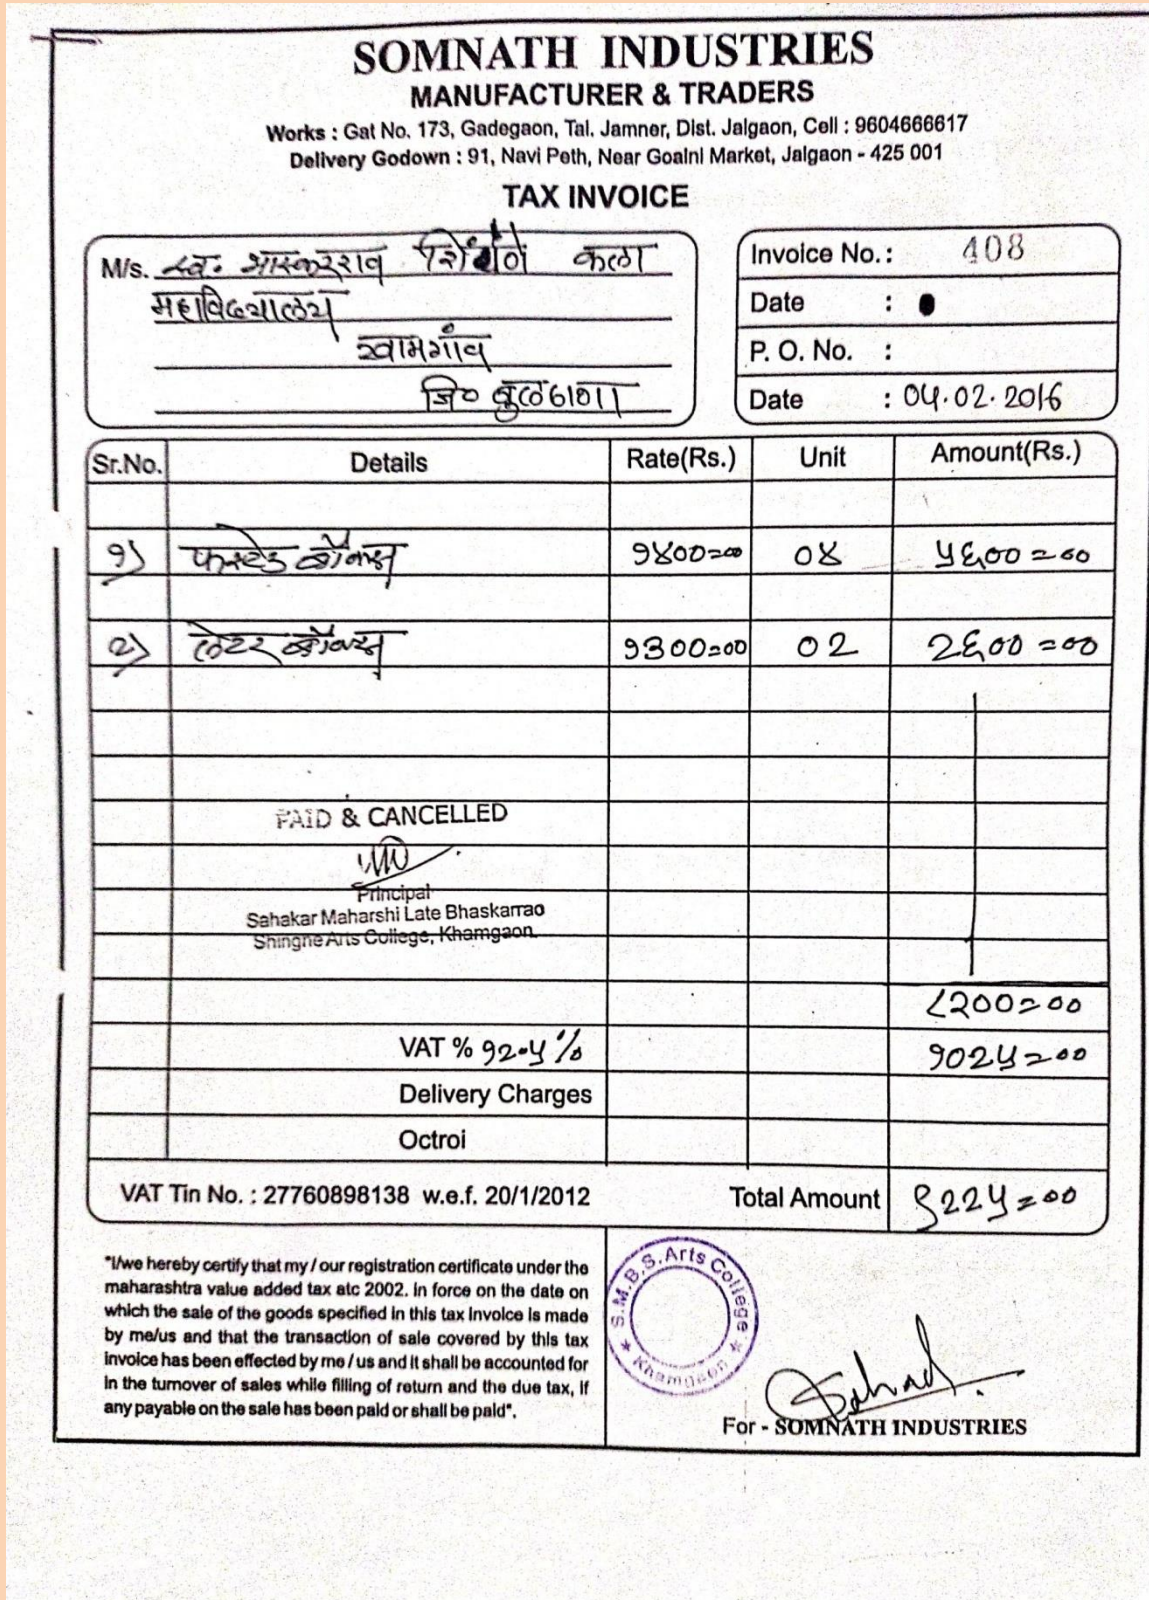 SOMNATH INDUSTRIES
MANUFACTURER & TRADERS
Works : Gat No. 173, Gadegaon, Tal. Jamner, Dist. Jalgaon, Cell : 9604666617
Delivery Godown : 91, Navi Peth, Near Goalni Market, Jalgaon - 425 001
TAX INVOICE
M/s. स्व. भास्करराव शिंगणे कला
महाविद्यालय
खामगांव
जि० बुलढाणा
Invoice No. : 408
Date :
P. O. No. :
Date : 04.02.2016
Sr.No. Details Rate(Rs.) Unit Amount(Rs.)
१) फस्टेड बॉक्स १४००=०० ०४ ५६००=००
२) लेटर बॉक्स १३००=०० ०२ २६००=००
PAID & CANCELLED
Principal
Sahakar Maharshi Late Bhaskarrao
Shingne Arts College, Khamgaon.
८२००=००
VAT % १२.५% १०२५=००
Delivery Charges
Octroi
VAT Tin No. : 27760898138 w.e.f. 20/1/2012 Total Amount ९२२५=००
"I/we hereby certify that my / our registration certificate under the
maharashtra value added tax atc 2002. In force on the date on
which the sale of the goods specified in this tax invoice is made
by me/us and that the transaction of sale covered by this tax
invoice has been effected by me / us and it shall be accounted for
in the turnover of sales while filling of return and the due tax, if
any payable on the sale has been paid or shall be paid".
S.M.B.S. Arts College
Khamgaon
For - SOMNATH INDUSTRIES